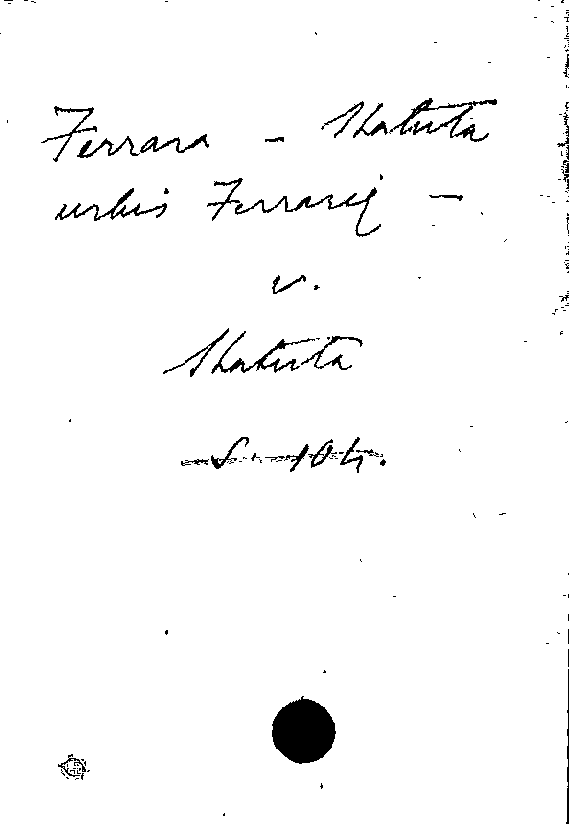 Ferrara - Statuta
urbis Ferrarie -
v.
Statuta
S. 104.